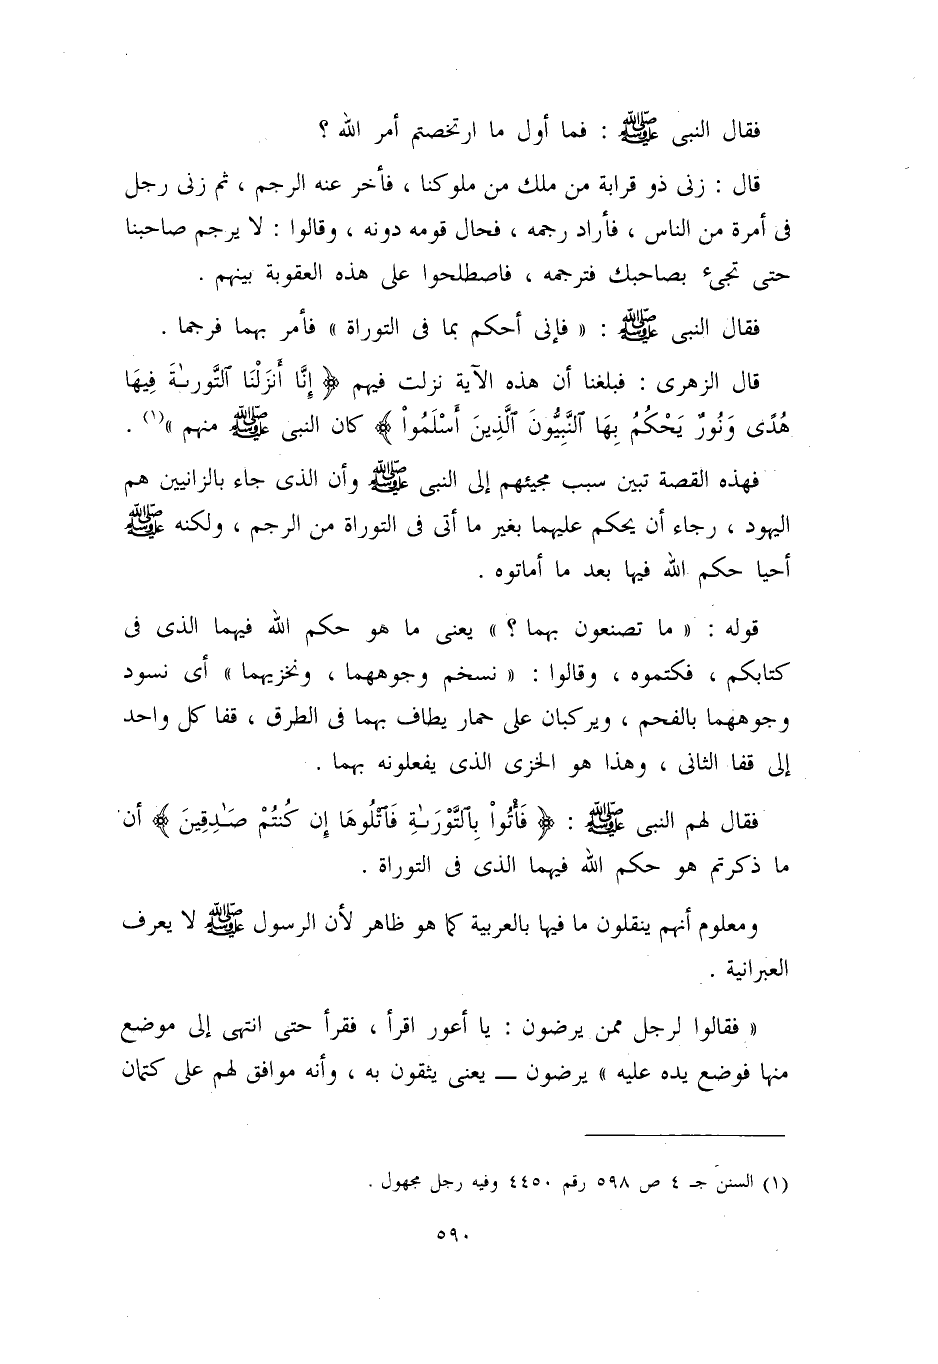 فقال النبى ﷺ : فما أول ما ارتخصتم أمر الله ؟
قال : زنى ذو قرابة من ملك من ملوكنا ، فأخر عنه الرجم ، ثم زنى رجل
فى أمرة من الناس ، فأراد رجمه ، فحال قومه دونه ، وقالوا : لا يرجم صاحبنا
حتى تجىء بصاحبك فترجمه ، فاصطلحوا على هذه العقوبة بينهم .
فقال النبى ﷺ : « فإنى أحكم بما فى التوراة » فأمر بهما فرجما .
قال الزهرى : فبلغنا أن هذه الآية نزلت فيهم ﴿ إِنَّا أَنزَلْنَا ٱلتَّوْرَىٰةَ فِيهَا
هُدًى وَنُورٌ يَحْكُمُ بِهَا ٱلنَّبِيُّونَ ٱلَّذِينَ أَسْلَمُواْ ﴾ كان النبى ﷺ منهم »(١) .
فهذه القصة تبين سبب مجيئهم إلى النبى ﷺ وأن الذى جاء بالزانيين هم
اليهود ، رجاء أن يحكم عليهما بغير ما أتى فى التوراة من الرجم ، ولكنه ﷺ
أحيا حكم الله فيها بعد ما أماتوه .
قوله : « ما تصنعون بهما ؟ » يعنى ما هو حكم الله فيهما الذى فى
كتابكم ، فكتموه ، وقالوا : « نسخم وجوههما ، ونخزيهما » أى نسود
وجوههما بالفحم ، ويركبان على حمار يطاف بهما فى الطرق ، قفا كل واحد
إلى قفا الثانى ، وهذا هو الخزى الذى يفعلونه بهما .
فقال لهم النبى ﷺ : ﴿ فَأْتُواْ بِٱلتَّوْرَىٰةِ فَٱتْلُوهَا إِن كُنتُمْ صَـٰدِقِينَ ﴾ أن
ما ذكرتم هو حكم الله فيهما الذى فى التوراة .
ومعلوم أنهم ينقلون ما فيها بالعربية كما هو ظاهر لأن الرسول ﷺ لا يعرف
العبرانية .
« فقالوا لرجل ممن يرضون : يا أعور اقرأ ، فقرأ حتى انتهى إلى موضع
منها فوضع يده عليه » يرضون ــ يعنى يثقون به ، وأنه موافق لهم على كتمان
(١) السنن جـ ٤ ص ٥٩٨ رقم ٤٤٥٠ وفيه رجل مجهول .
٥٩٠